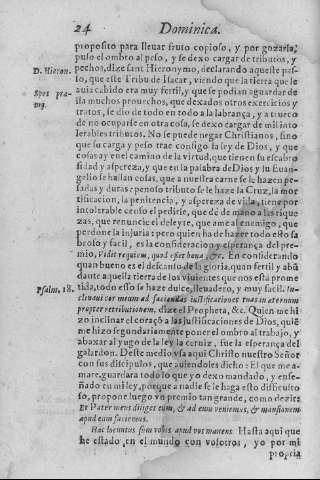 24 Dominica.
proposito para lleuar fruto copioso, y por gozarlo,
puso el ombro al peso, y se dexo cargar de tributos, y
D. Hieron.
pechos, dize sant Hieronymo, declarando aqueste pas-
so, que este Tribu de Isacar, viendo que la tierra que le
Spes
auia cabido era muy fertil, y que se podian aguardar de
lla muchos prouechos, que dexados otros exercicios y
tratos, se dio de todo en todo a la labrança, y a trueco
de no ocuparse en otra cosa, se dexo cargar de mil into
lerables tributos. No se puede negar Christianos, sino
que su carga y peso trae consigo la ley de Dios, y que
cosas ay en el camino de la virtud, que tienen su escabro
sidad y aspereza, y que en la palabra de Dios y su Euan-
gelio se hallan cosas, que a nuestra carne se le hazen pe-
sadas y duras: penoso tributo se le haze la Cruz, la mor
tificacion, la penitencia, y aspereza de vida, tiene por
intolerable censo el pedirle, que dè de mano a las rique
zas, que renuncie el deleyte, que ame al enemigo, que
perdone la injuria: pero quien ha de hazer todo esto sa
broso y facil, es la consideracion y esperança del pre-
mio, Vidit requiem, quod esset bona, &c. En considerando
quan bueno es el descanso de la gloria, quan fertil y abũ
dante aquella tierra de los viuientes que nos està prome
Psalm. 18.
tida, todo esso se haze dulce, lleuadero, y muy facil. In-
clinaui cor meum ad faciendas iustificationes tuas in æternum
propter retributionem, dize el Propheta, &c. Quien me hi
zo inclinar el coraçõ a las justificaciones de Dios, quiẽ
me hizo segundariamente poner el ombro al trabajo, y
abaxar al yugo de la ley la ceruiz, fue la esperança del
galardon. Deste medio vsa aqui Christo nuestro Señor
con sus discipulos, que auiendoles dicho: El que me a-
mare, guardara todo lo que yo dexo mandado, y ense-
ñado en mi ley, porque a nadie se le haga esto dificulto
so, propone luego vn premio tan grande, como dezir:
Et Pater meus diliget eum, & ad eum veniemus, & mansionem
apud eum faciemus.
Hæc locutus sum vobis apud vos manens. Hasta aqui que
he estado, en el mundo con vosotros, yo por mi
propria